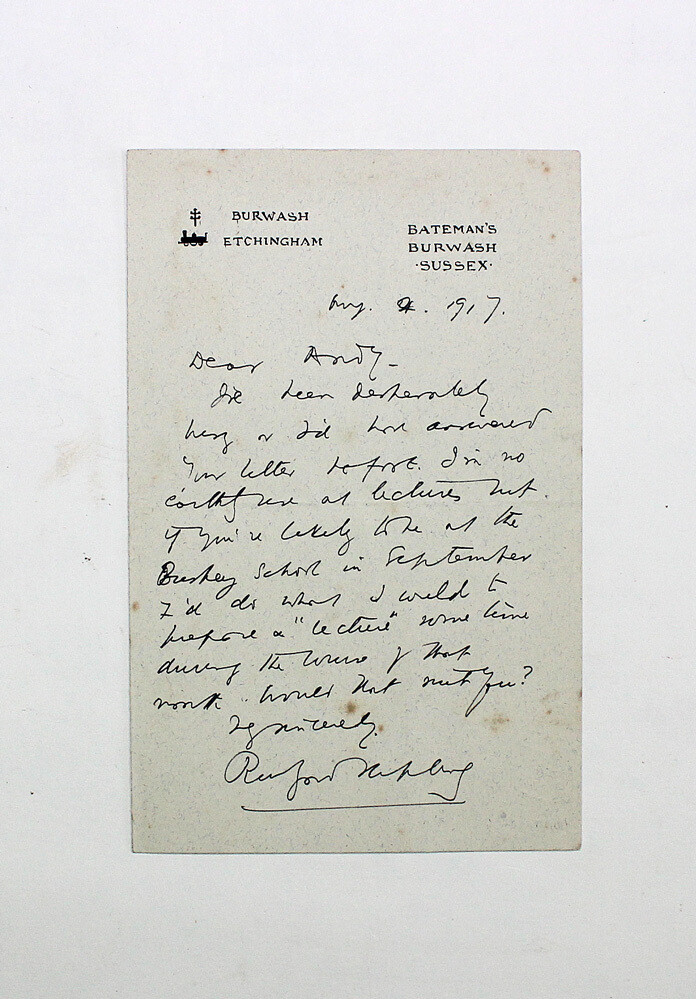 BURWASH
ETCHINGHAM
BATEMAN'S
BURWASH
·SUSSEX·
Aug. 2. 1917.
Dear Andy–
I've been desperately
busy or I'd have answered
your letter before. I'm no
earthly use at lectures but.
if you're likely to be at the
Bushey School in September
I'd do what I could to
prepare a "lecture" some time
during the course of that
month. Would that suit you?
sincerely.
Rudyard Kipling